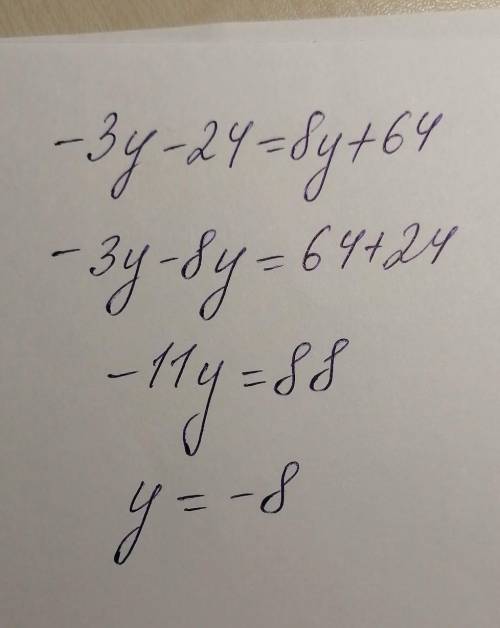 -3y-24=8y+64
-3y-8y=64+24
-11y=88
y=-8